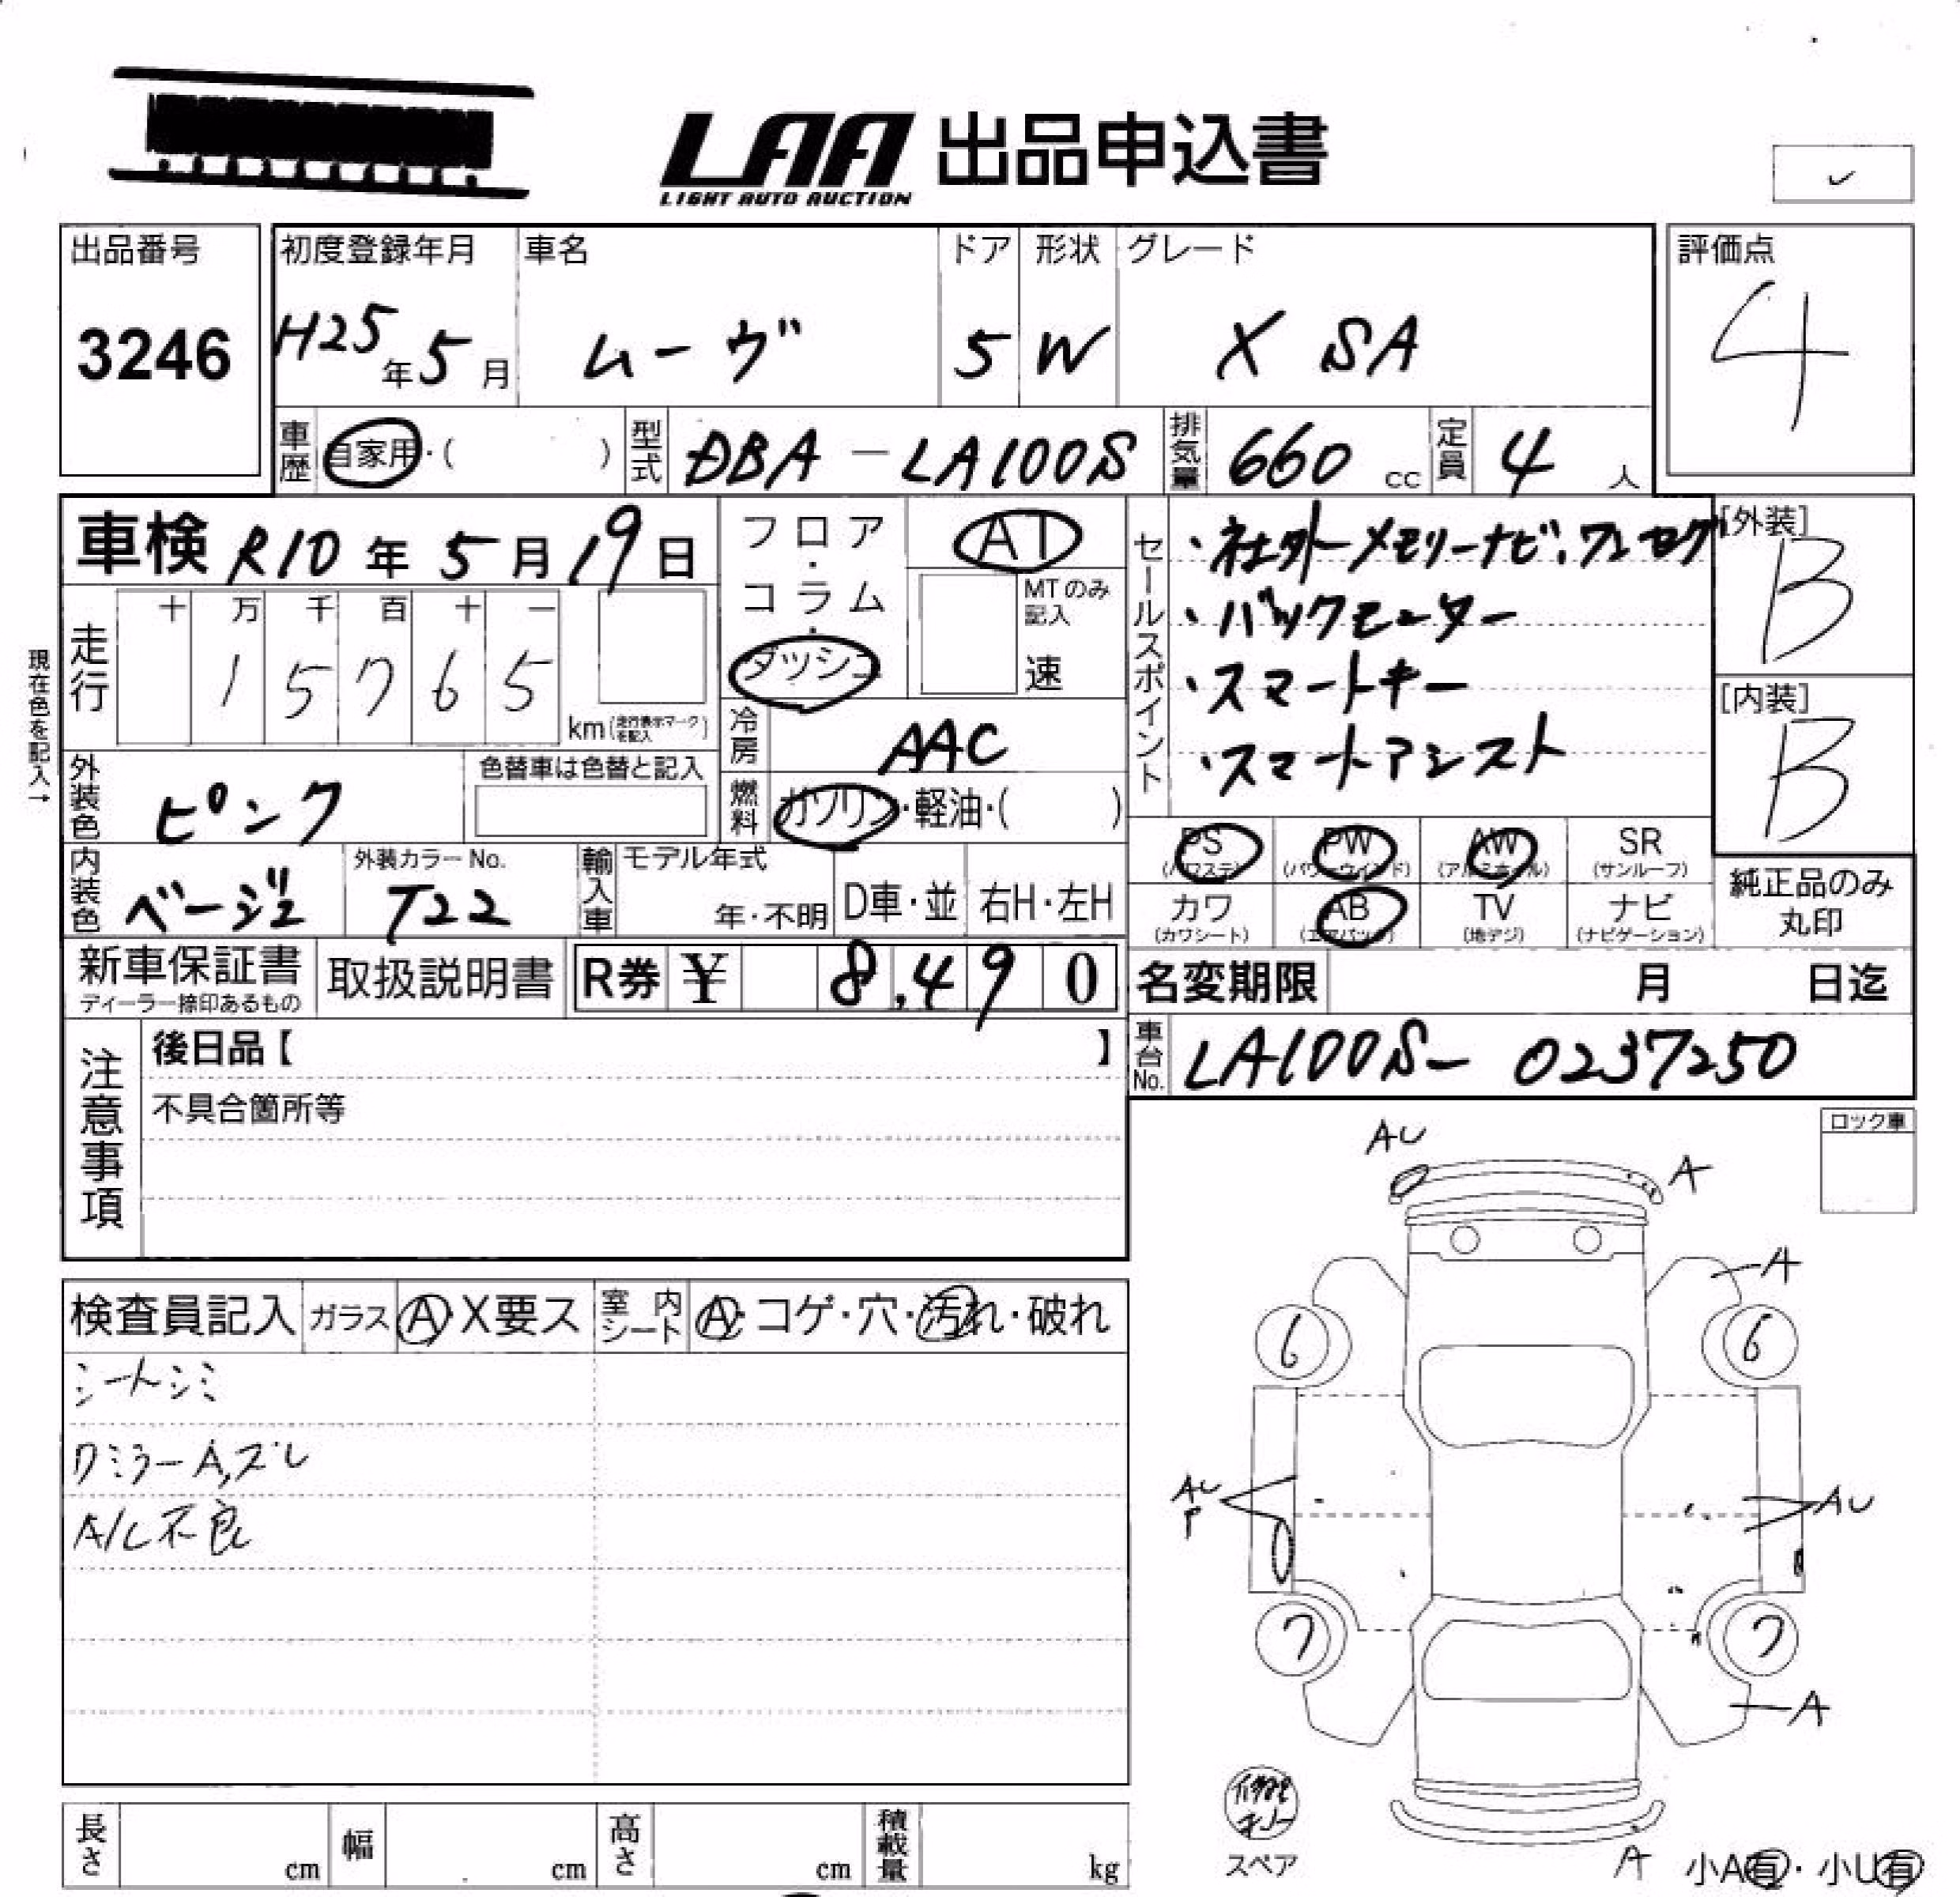 LAA 出品申込書
LIGHT AUTO AUCTION
出品番号
3246
初度登録年月
H25年5月
車名
ムーヴ
ドア
5
形状
W
グレード
X SA
評価点
4
車歴
自家用・( )
型式
DBA-LA100S
排気量
660 cc
定員
4 人
車検 R10年5月19日
フロア・コラム・ダッシュ
AT
MTのみ記入
速
現在色を記入→
走行
十 万 千 百 十 一
1 5 7 6 5
km(走行表示マークを記入)
冷房
AAC
外装色
ピンク
色替車は色替と記入
燃料
ガソリン・軽油・( )
内装色
ベージュ
外装カラーNo.
T22
輸入車
モデル年式
年・不明
D車・並
右H・左H
セールスポイント
・社外メモリーナビ、ワンセグ
・バックモニター
・スマートキー
・スマートアシスト
[外装]
B
[内装]
B
PS
(パワステ)
PW
(パワーウインド)
AW
(アルミホイル)
SR
(サンルーフ)
カワ
(カワシート)
AB
(エアバック)
TV
(地デジ)
ナビ
(ナビゲーション)
純正品のみ
丸印
新車保証書
ディーラー捺印あるもの
取扱説明書
R券 ¥ 8,490
名変期限 月 日迄
車台No.
LA100S-0237250
注意事項
後日品【 】
不具合箇所等
ロック車
検査員記入
ガラス
A・X要ス
室内シート
A・コゲ・穴・汚れ・破れ
シートシミ
ワミラーA,ズレ
A/C不良
AU
A
A
6
6
AU
P
AU
7
7
A
スペア
A
小A有・小U有
長さ cm
幅 cm
高さ cm
積載量 kg